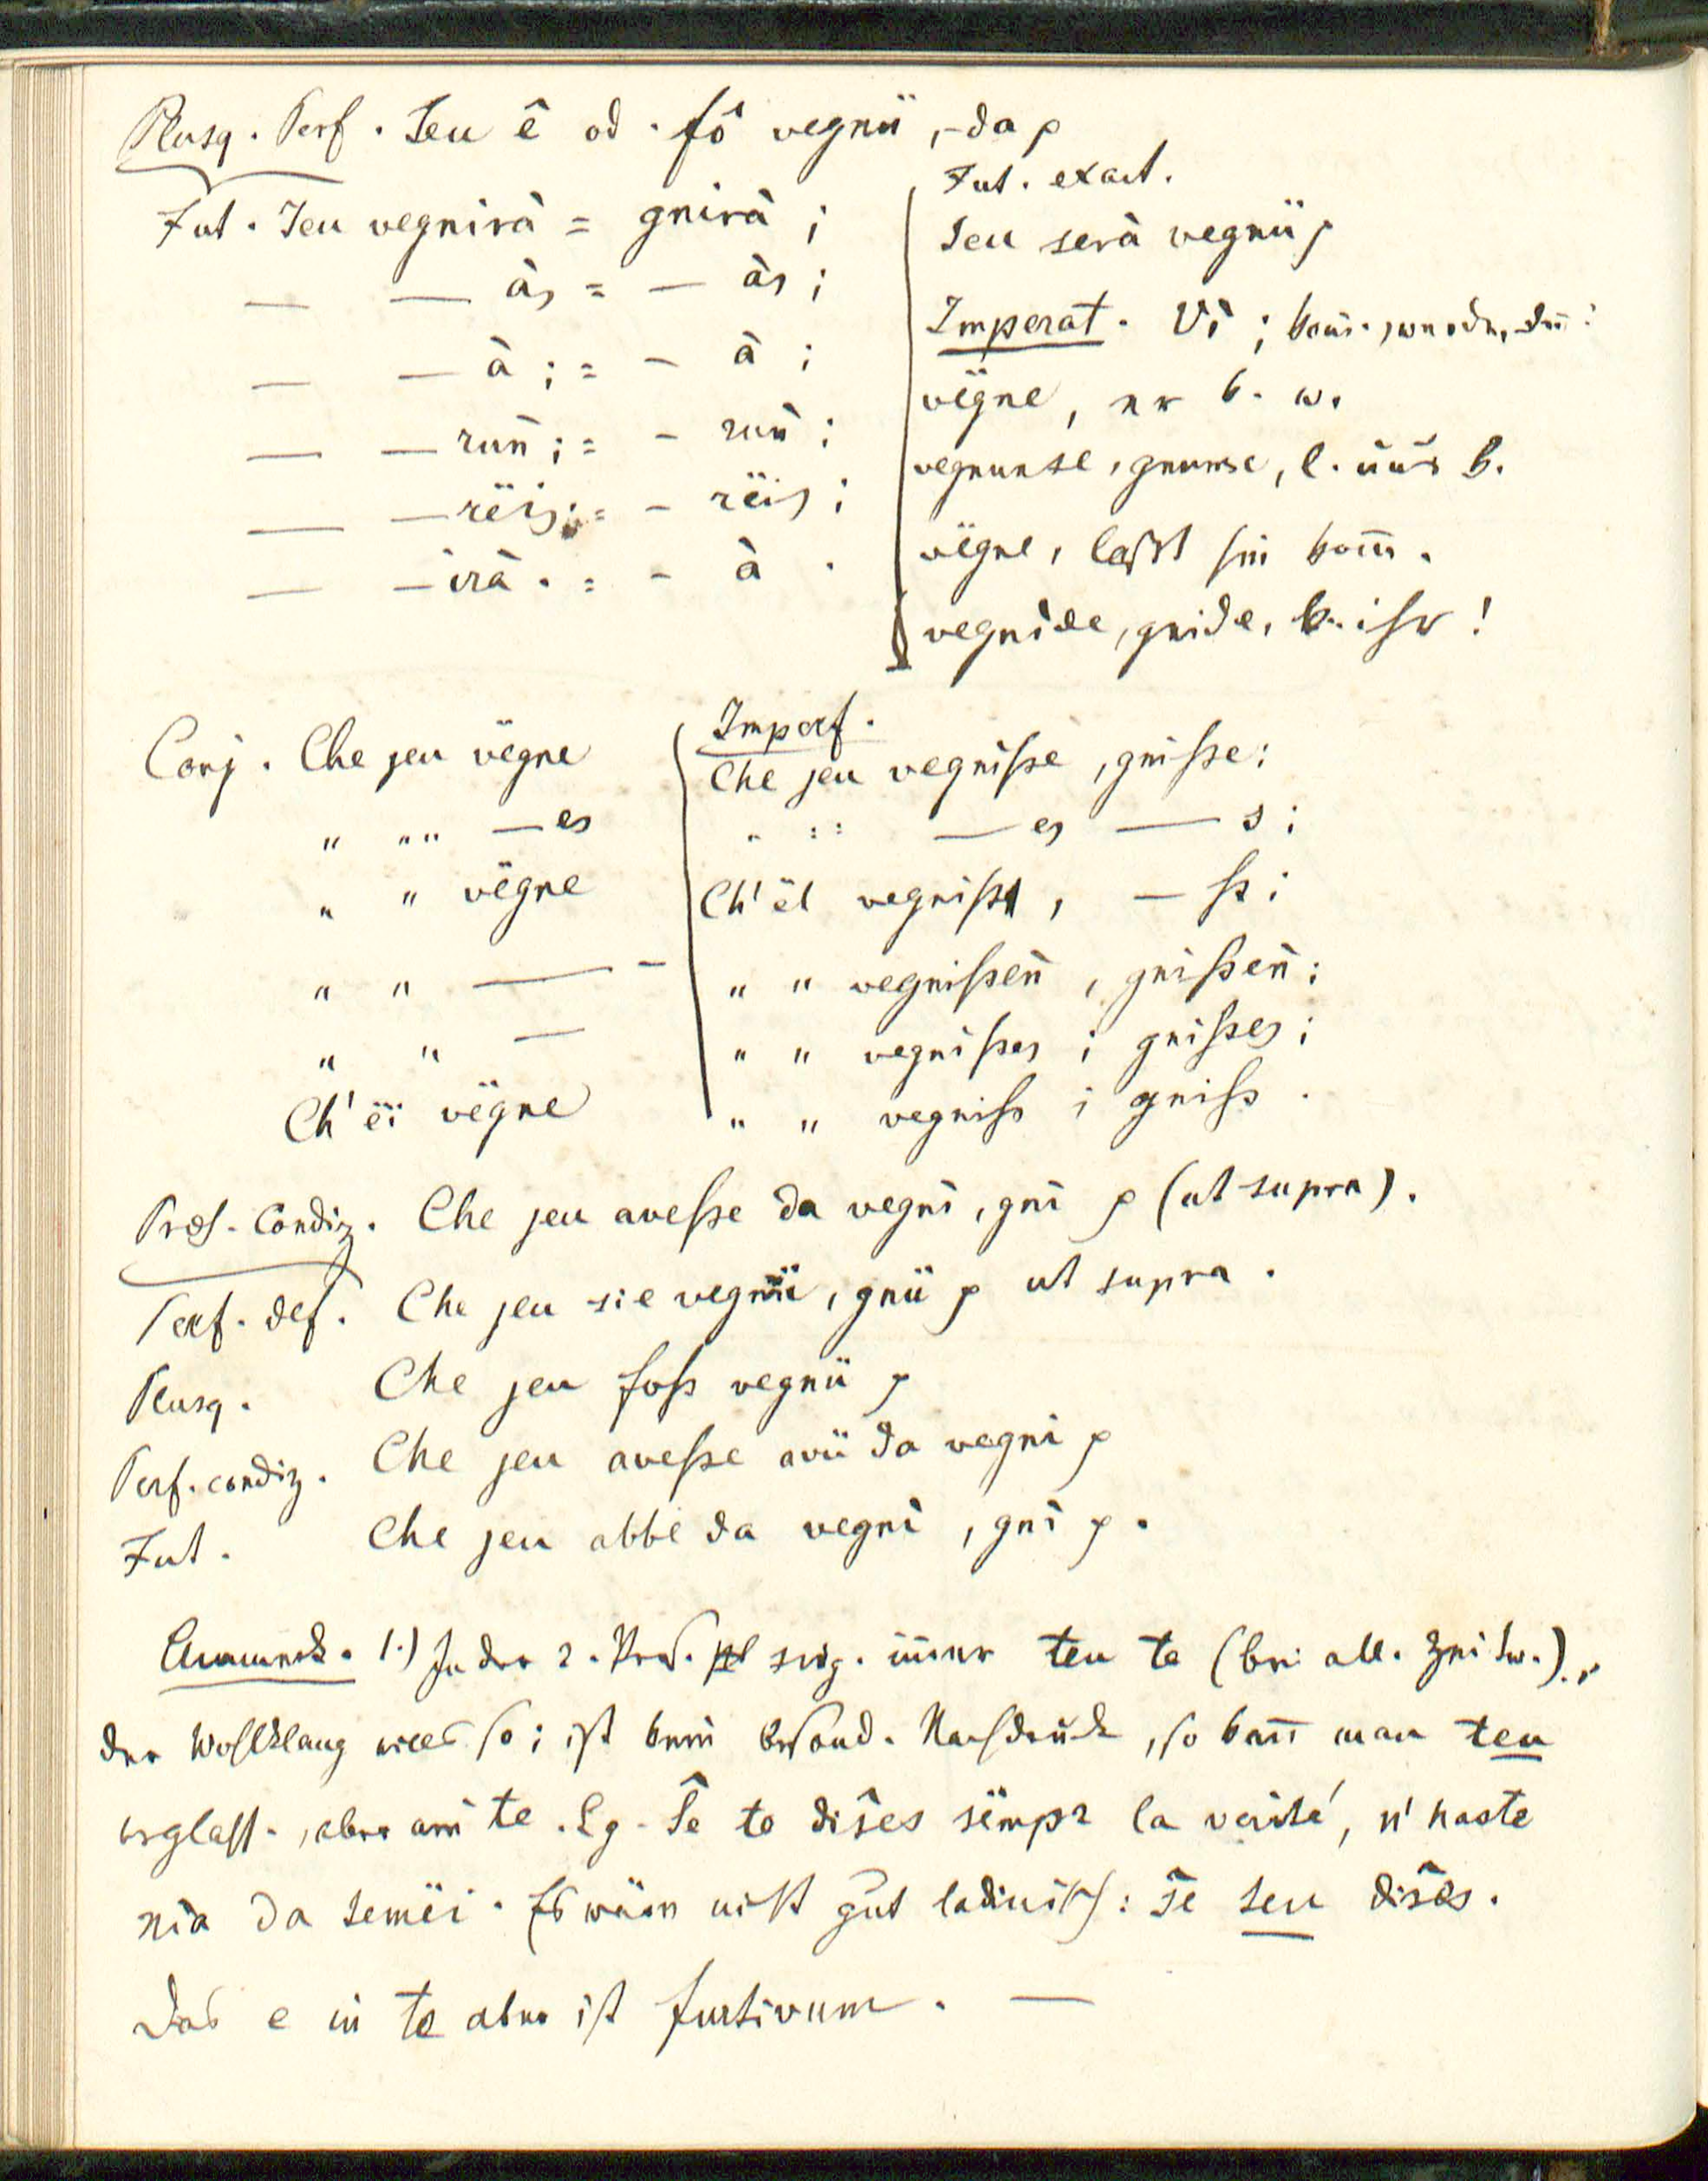 Plusq. Perf. Jeu ê od. fô vegnü, -da p
Fut. Jeu vegnirà = gnirà;
— — às = — às;
— — à; = — à;
— — run̄; = — run̄;
— — rëis; = — rëis;
— — irà. = — à.
Fut. exact.
Jeu serà vegnü p
Imperat. Vì; kom̄., werde, du!
vëgne, er k. w.
vegnunse, gnunse, l. uns k.
vëgne, lasst sie kom̄.
vegnide, gnide, k. ihr!
Conj. Che jeu vëgne
„ „„ — es
„ „ vëgne
„ „ — –
„ „ —
Ch' ëi vëgne
Imperf.
Che jeu vegnisse, gnisse;
„ „ — es — s;
Ch' ël vegniss, — ss;
„ „ vegnissen̄, gnissen̄;
„ „ vegnisses; gnisses;
„ „ vegniss; gniss.
Präs. Condiz. Che jeu avesse da vegnì, gnì p (ut supra).
Perf. def. Che jeu sie vegnü, gnü p ut supra.
Plusq. Che jeu foss vegnü p
Perf. condiz. Che jeu avesse avü da vegnì p
Fut. Che jeu abbe da vegnì, gnì p.
Anmerk. 1.) In der 2. Pers. sing. im̄er teu te (bei all. Zeitw.),
der Wohlklang will es so; ist kein besond. Nachdruck, so kan̄ man teu
weglass., aber nie te. Eg. Ŝe te diŝes sëmpr la verité, n' haste
nia da temëi. Es wäre nicht gut ladinisch: ŝe teu diŝes.
Das e in te aber ist furtivum. —